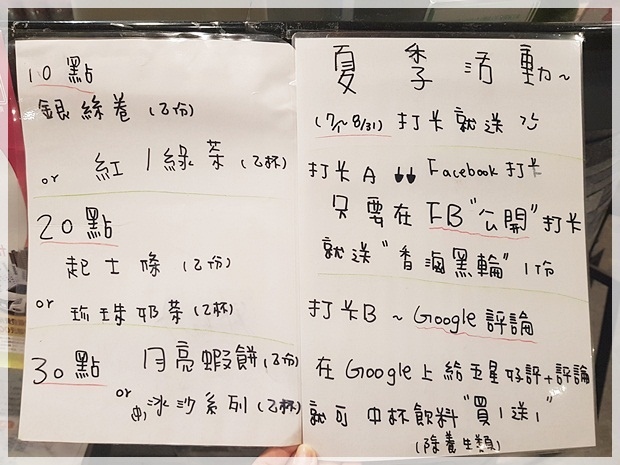 10點
銀絲卷(2份)
or 紅/綠茶(2杯)
20點
起士條(2份)
or 珍珠奶茶(2杯)
30點 月亮蝦餅(2份)
or 中冰沙系列(2杯)
夏季活動~
(7/1~8/31) 打卡就送
打卡A ↓↓ Facebook打卡
只要在FB"公開"打卡
就送"香滷黑輪"1份
打卡B ~ Google評論
在Google上給五星好評+評論
就可中杯飲料"買1送1"
(除養生類)